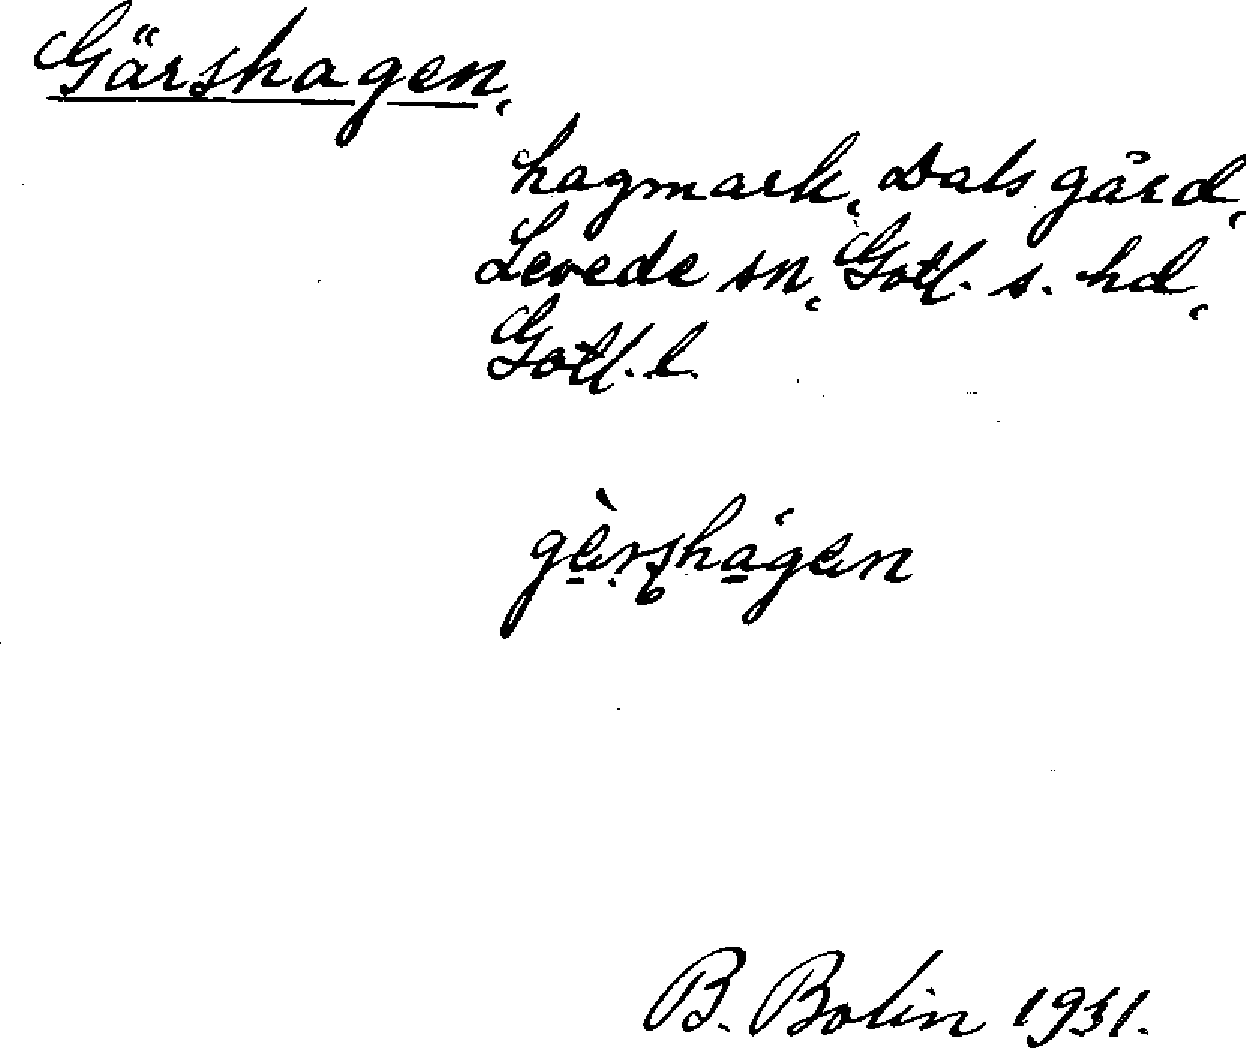 Gärshagen,
hagmark, Dals gård,
Levede sn, Gotl. s. hd,
Gotl. l.
gèrshágen
B. Bolin 1931.